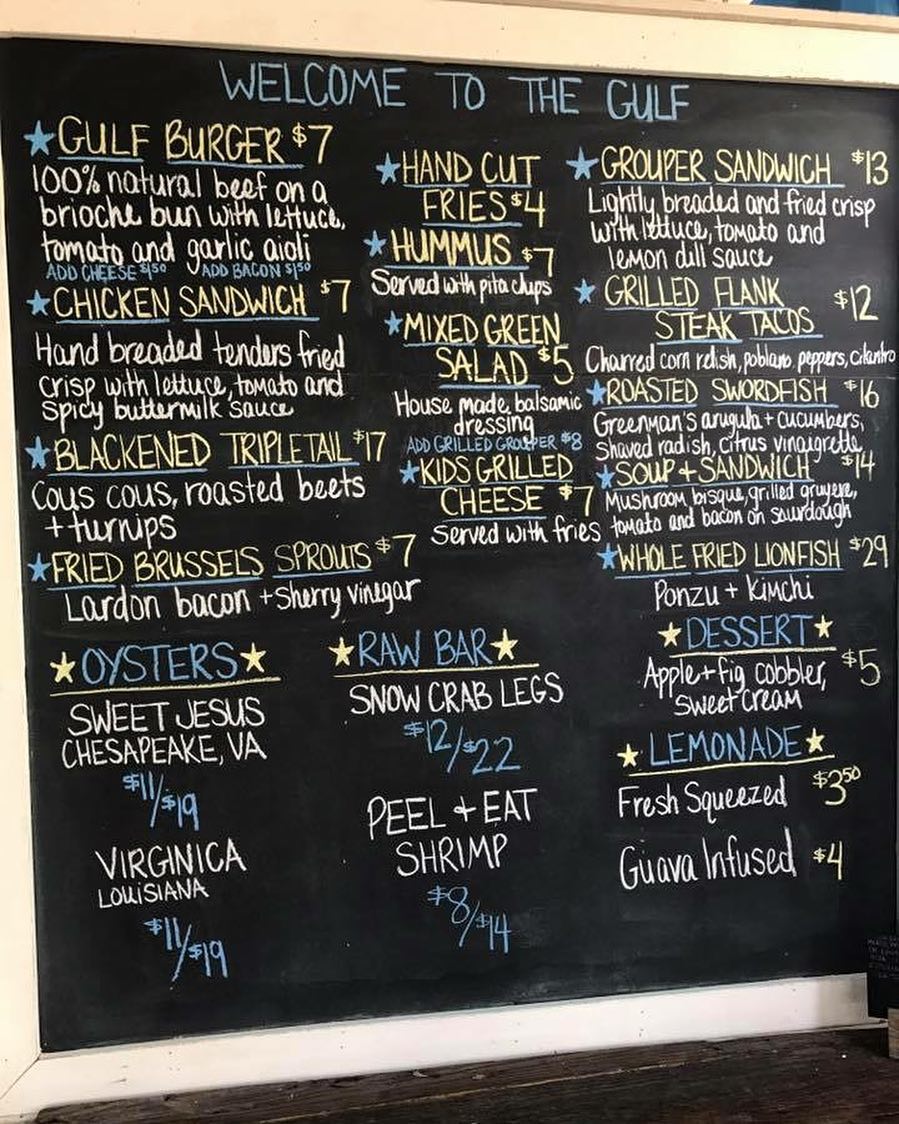 WELCOME TO THE GULF
GULF BURGER $7
100% natural beef on a
brioche bun with lettuce,
tomato and garlic aioli
ADD CHEESE $1.50 ADD BACON $1.50
CHICKEN SANDWICH $7
Hand breaded tenders fried
crisp with lettuce, tomato and
spicy buttermilk sauce
BLACKENED TRIPLETAIL $17
Cous cous, roasted beets
+ turnips
FRIED BRUSSELS SPROUTS $7
Lardon bacon + sherry vinegar
HAND CUT
FRIES $4
HUMMUS $7
Served with pita chips
MIXED GREEN
SALAD $5
House made balsamic
dressing
ADD GRILLED GROUPER $8
KIDS GRILLED
CHEESE $7
Served with fries
GROUPER SANDWICH $13
Lightly breaded and fried crisp
with lettuce, tomato and
lemon dill sauce
GRILLED FLANK
STEAK TACOS $12
Charred corn relish, poblano peppers, cilantro
ROASTED SWORDFISH $16
Greenman's arugula + cucumbers,
Shaved radish, citrus vinaigrette
SOUP + SANDWICH $14
Mushroom bisque, grilled gruyere,
tomato and bacon on sourdough
WHOLE FRIED LIONFISH $29
Ponzu + Kimchi
OYSTERS
SWEET JESUS
CHESAPEAKE, VA
$11/$19
VIRGINICA
LOUISIANA
$11/$19
RAW BAR
SNOW CRAB LEGS
$12/$22
PEEL + EAT
SHRIMP
$8/$14
DESSERT
Apple + fig cobbler, $5
sweet cream
LEMONADE
Fresh Squeezed $3.50
Guava Infused $4